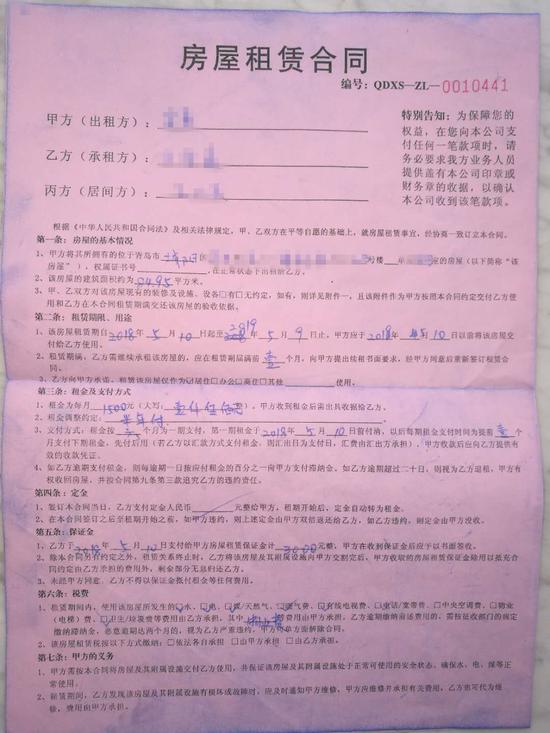 房屋租赁合同
编号：QDXS—ZL—0010441
甲方（出租方）：
乙方（承租方）：
丙方（居间方）：
特别告知：为保障您的
权益，在您向本公司支
付任何一笔款项时，请
务必要求我方业务人员
提供盖有本公司印章或
财务章的收据，以确认
本公司收到该笔款项。
根据《中华人民共和国合同法》及相关法律规定，甲、乙双方在平等自愿的基础上，就房屋租赁事宜，经协商一致订立本合同。
第一条：房屋的基本情况
1、甲方将其所拥有的位于青岛市 区 号楼 单 室的房屋（以下简称“该
房屋”），权属证书号 ，在正常状态下出租给乙方。
2、该房屋的建筑面积约为 平方米。
3、甲、乙双方对该房屋现有的装修及设施、设备□有□无约定，如有，则详见附件一，且该附件作为甲方按照本合同约定交付乙方使
用和乙方在本合同租赁期满交还该房屋的验收依据。
第二条：租赁期限、用途
1、该房屋租赁期自2018年5月10日起至2019年5月9日止，甲方应于2018年 10日以前将该房屋交
付给乙方使用。
2、租赁期满，乙方需继续承租该房屋的，应在租赁期届满前壹个月，向甲方提出续租书面要求，经甲方同意后重新签订租赁合
同。
3、乙方向甲方承诺，租赁该房屋仅作为☑居住□办公□商住□其他 使用。
第三条：租金及支付方式
1、租金为每月1500元（大写：壹仟伍佰元），甲方收到租金后需出具收据给乙方。
2、租金调整约定：半年付
3、支付方式：租金按 个月为一期支付，第一期租金于2018年5月10日前付清，以后每期租金支付时间为提前壹个
月支付下期租金，先付后用（若乙方以汇款方式支付租金，则汇出日为支付日，汇费由汇出方承担）。甲方收款后应向乙方提供有
效的收款凭证。
4、如乙方逾期支付租金，则每逾期一日按应付租金的百分之一向甲方支付滞纳金。如乙方逾期超过二十日，则视为乙方退租，甲方有
权收回房屋，并按合同第九条第三款追究乙方的违约责任。
第四条：定金
1、签订本合同当日，乙方支付定金人民币 元整给甲方，租期开始后，定金自动转为租金。
2、在本合同签订之后至租期开始之前，如甲方违约，则上述定金由甲方双倍返还给乙方，如乙方违约，则定金由甲方没收。
第五条：保证金
1、乙方于2018年5月10日支付给甲方房屋租赁保证金计 元整，甲方在收到保证金后应予以书面签收。
2、除本合同另有约定之外，租赁关系终止时，乙方将该房屋及其附属设施向甲方交割完后，甲方收取的房屋租赁保证金除用以抵充合
同约定由乙方承担的费用外，剩余部分无息归还乙方。
3、未经甲方同意，乙方不得以保证金抵付租金等任何费用。
第六条：税费
1、租赁期间内，使用该房屋所发生的☑水、☑电、☑煤/天然气、☑暖气费、☑有线电视费、□电话/宽带费、□中央空调费、□物业
（电梯）费、□卫生/垃圾费等费用由乙方承担，其中 等费用由甲方承担。乙方逾期缴纳前述费用的，需按征收部门的规定
缴纳滞纳金，恶意逾达两个月的，视为乙方严重违约，甲方可单方面解除合同。
2、该房屋租赁税按以下方式缴纳：□依法各自承担 □由甲方承担 □由乙方承担。
第七条：甲方的义务
1、甲方需按本合同将房屋及其附属设施交付乙方使用，并保证该房屋及其附属设施处于正常可使用的安全状态。确保水、电、煤等正
常使用。
2、租赁期间，乙方发现该房屋及其附属设施有损坏或故障时，应及时通知甲方维修，甲方应维修并承担有关费用，乙方也可代为维
修，费用由甲方承担。